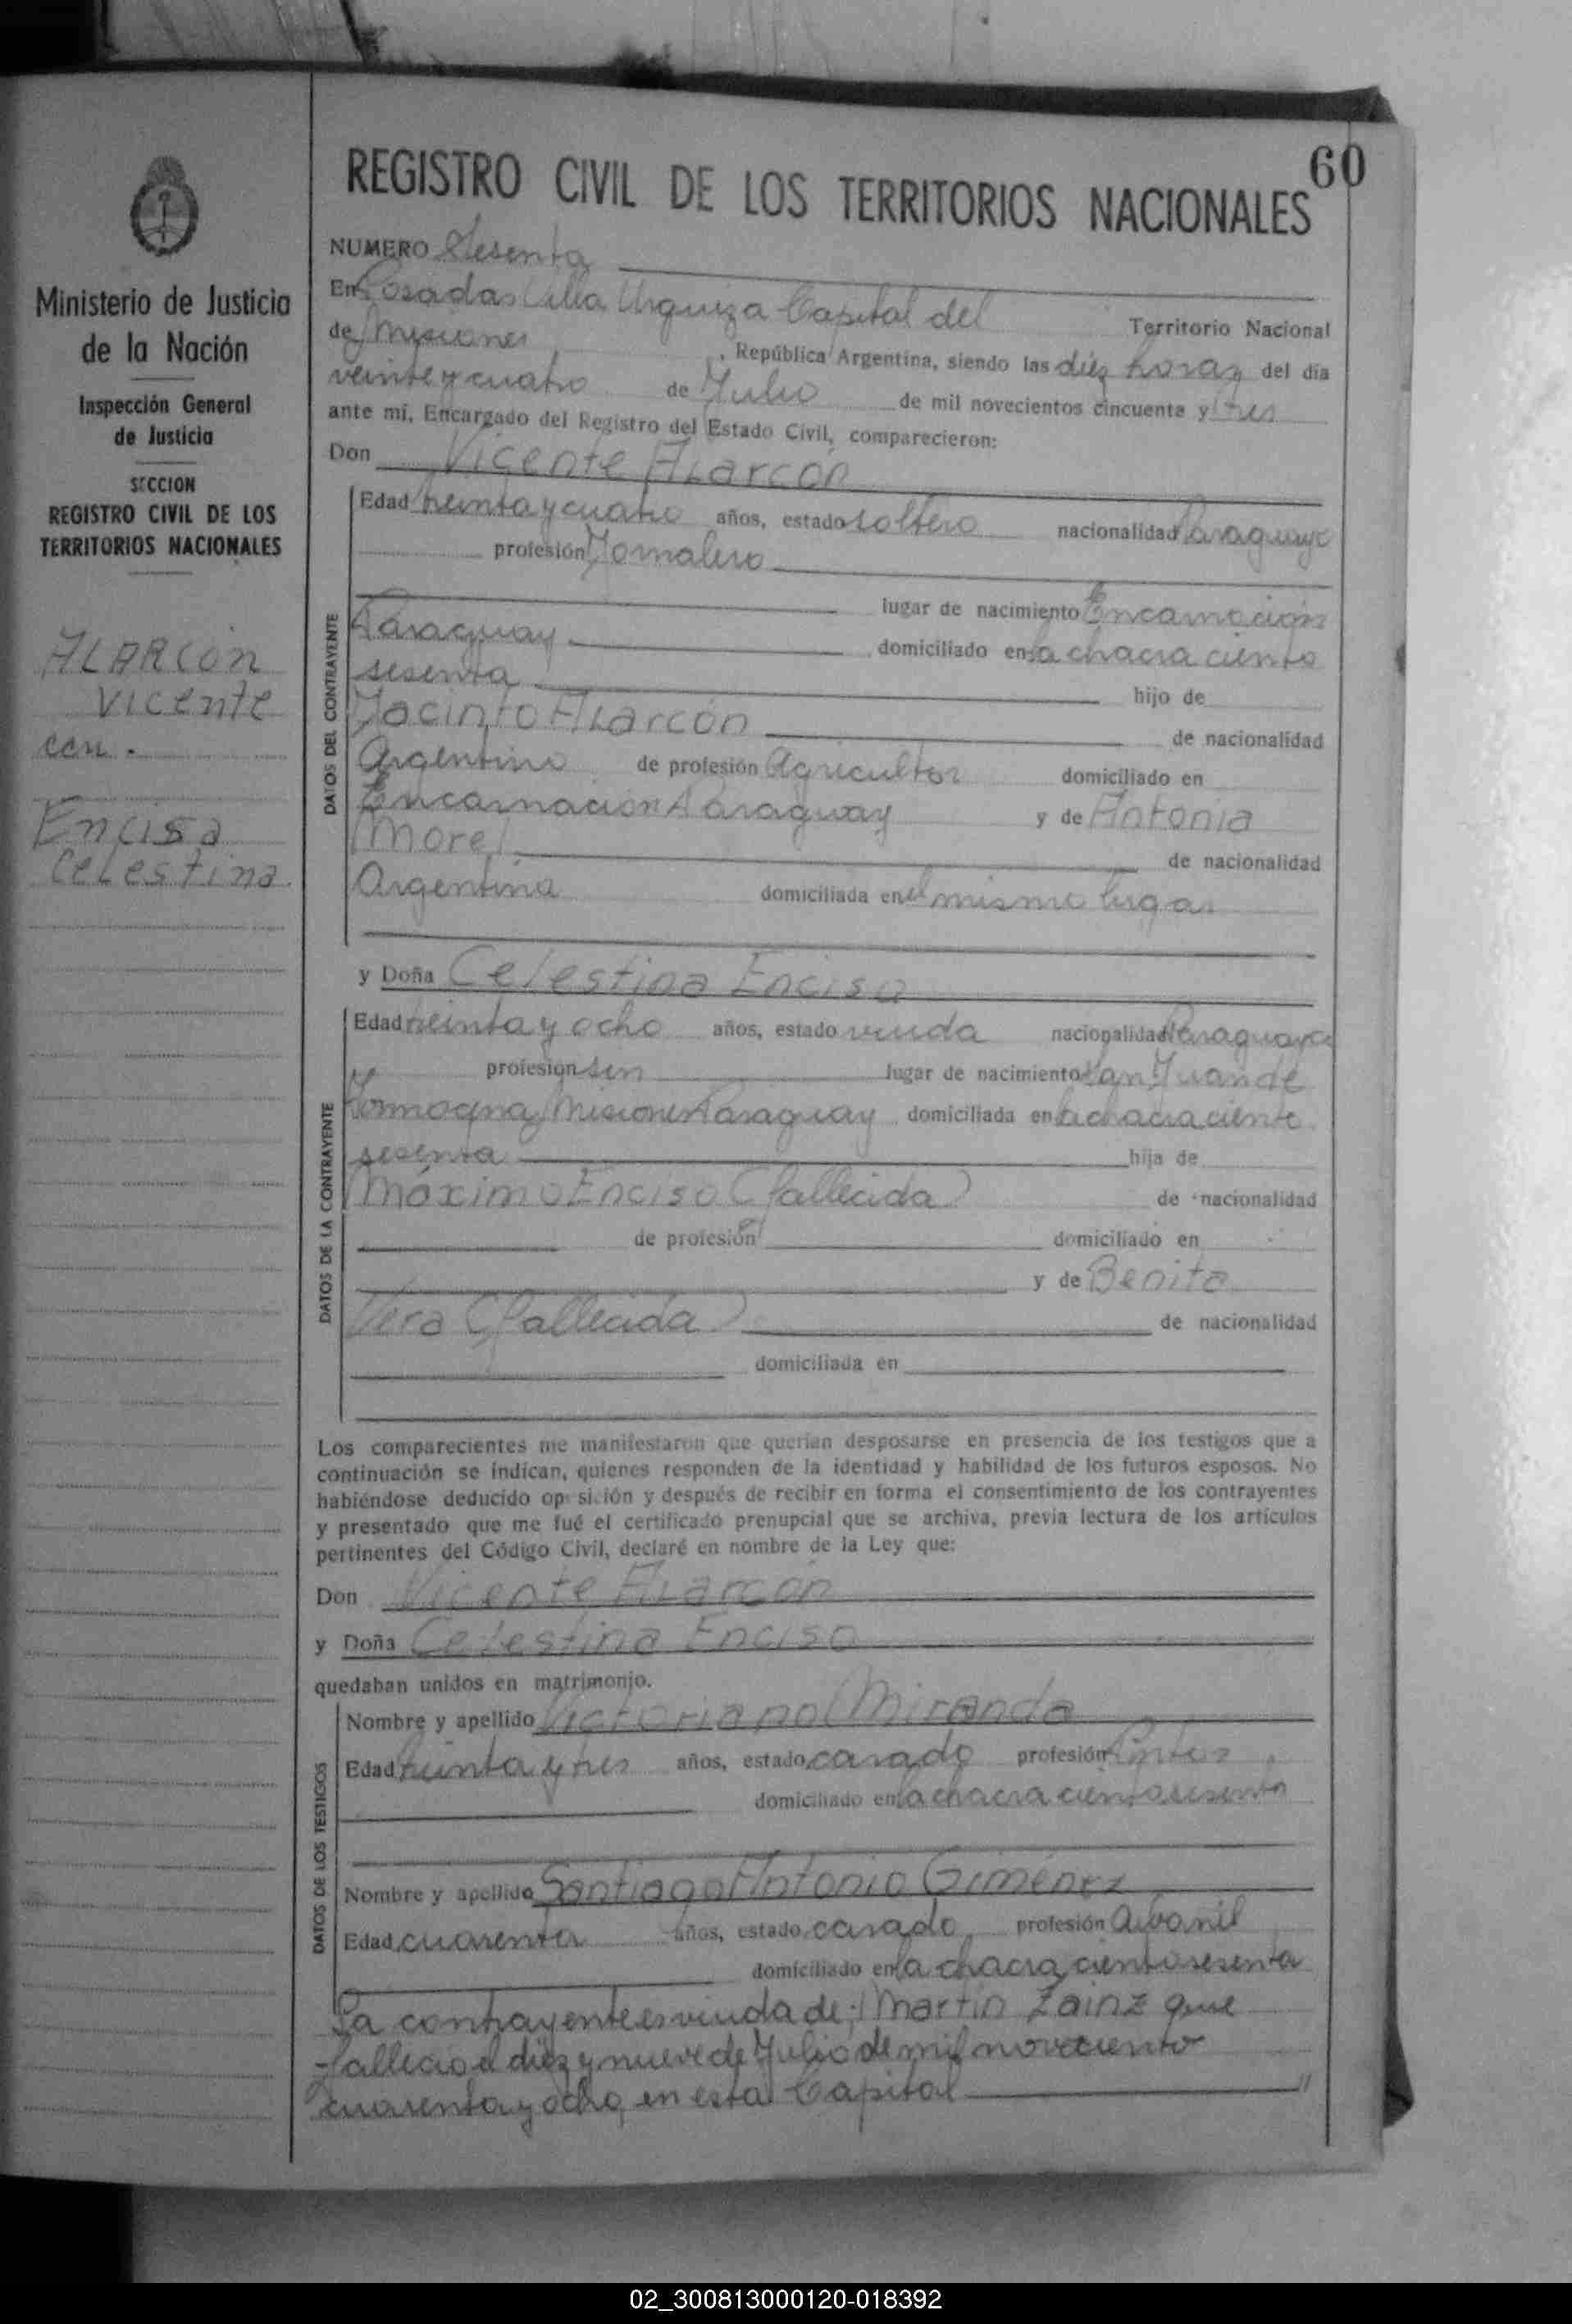 60
REGISTRO CIVIL DE LOS TERRITORIOS NACIONALES
Ministerio de Justicia
de la Nación
Inspección General
de Justicia
SECCION
REGISTRO CIVIL DE LOS
TERRITORIOS NACIONALES
ALARCÓN
Vicente
con.
Enciso
Celestina.
NUMERO Sesenta
En Posadas Villa Urquiza Capital del Territorio Nacional
de Misiones, República Argentina, siendo las diéz horas del día
veinte y cuatro de Julio de mil novecientos cincuenta y tres
ante mi, Encargado del Registro del Estado Civil, comparecieron:
Don Vicente Alarcón
DATOS DEL CONTRAYENTE
Edad treinta y cuatro años, estado soltero nacionalidad Paraguayo
profesión Jornalero
lugar de nacimiento Encarnación
Paraguay domiciliado en la chacra ciento
sesenta hijo de
Jacinto Alarcón de nacionalidad
Argentino de profesión Agricultor domiciliado en
Encarnación Paraguay y de Antonia
Morel de nacionalidad
Argentina domiciliada en el mismo lugar
y Doña Celestina Enciso
DATOS DE LA CONTRAYENTE
Edad treinta y ocho años, estado viuda nacionalidad Paraguaya
profesión sin lugar de nacimiento San Juan de
Misiones Paraguay domiciliada en la chacra ciento
sesenta hija de
Máximo Enciso (fallecida) de nacionalidad
de profesión domiciliado en
y de Benita
Vera (fallecida) de nacionalidad
domiciliada en
Los comparecientes me manifestaron que querían desposarse en presencia de los testigos que a
continuación se indican, quienes responden de la identidad y habilidad de los futuros esposos. No
habiéndose deducido oposición y después de recibir en forma el consentimiento de los contrayentes
y presentado que me fué el certificado prenupcial que se archiva, previa lectura de los artículos
pertinentes del Código Civil, declaré en nombre de la Ley que:
Don Vicente Alarcón
y Doña Celestina Enciso
quedaban unidos en matrimonio.
DATOS DE LOS TESTIGOS
Nombre y apellido Victoriano Miranda
Edad treinta y tres años, estado casado profesión Pintor
domiciliado en la chacra ciento sesenta
Nombre y apellido Santiago Antonio Giménez
Edad cuarenta años, estado casado profesión Albanil
domiciliado en la chacra ciento sesenta
La contrayente es viuda de; Martin Zainz que
fallecio el diéz y nueve de Julio de mil novecientо
cuarenta y ocho en esta Capital
02_300813000120-018392